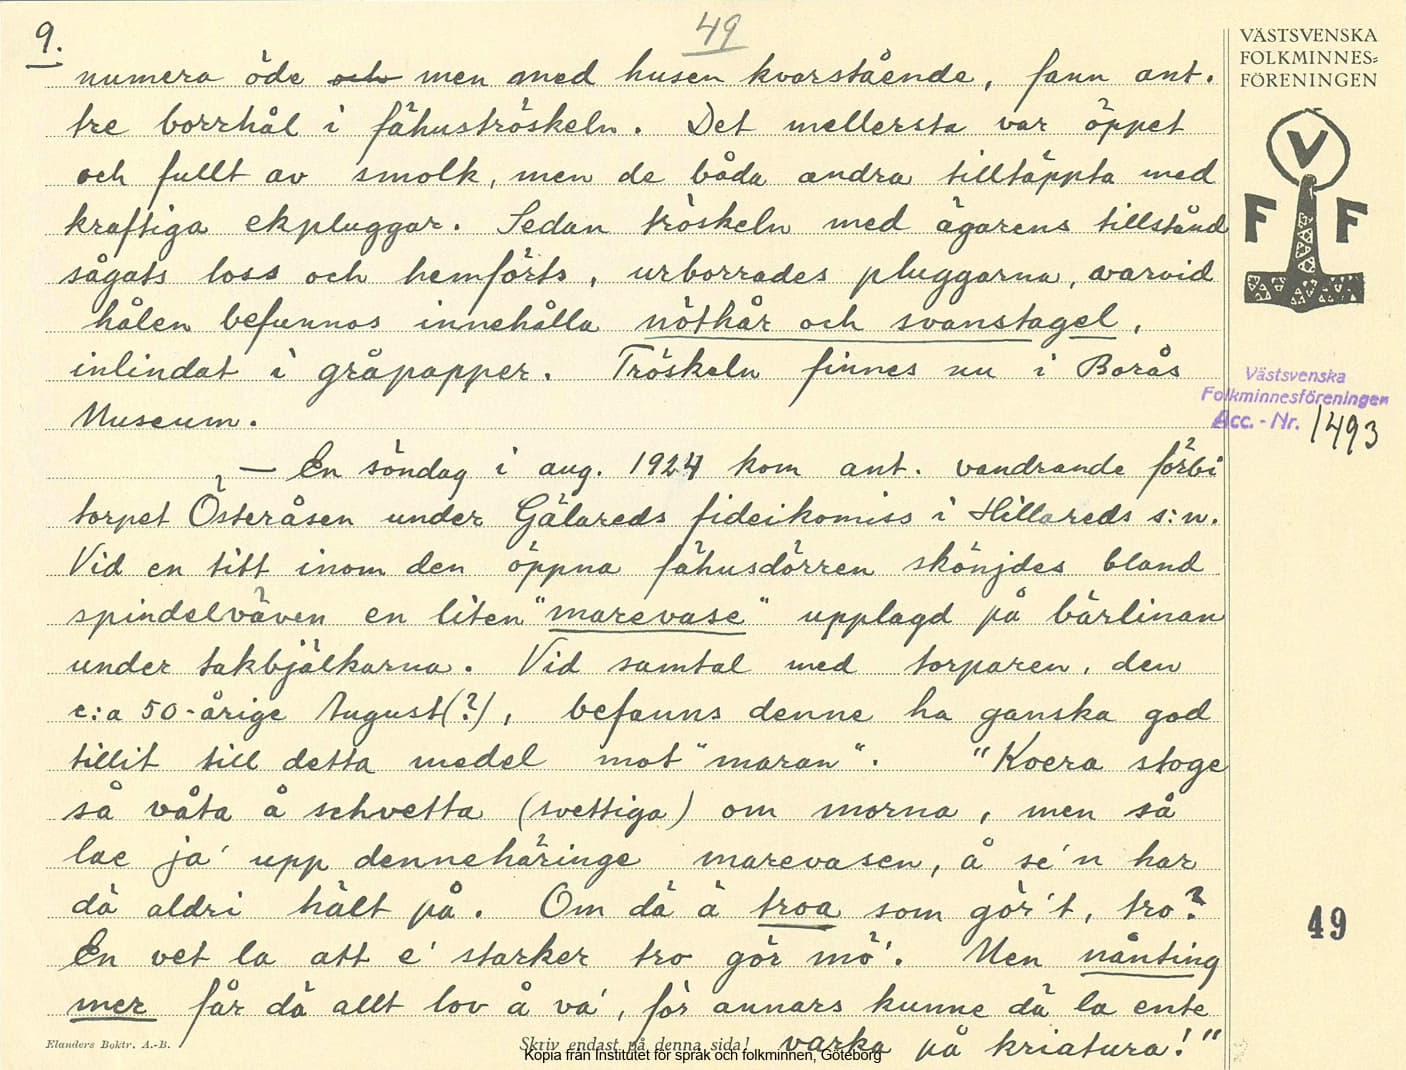 9.
49
VÄSTSVENSKA
FOLKMINNES=
FÖRENINGEN
V
F F
numera öde och men med husen kvarstående, fann ant.
tre borrhål i fähuströskeln. Det mellersta var öppet
och fullt av smolk, men de båda andra tilltäppta med
kraftiga ekpluggar. Sedan tröskeln med ägarens tillstånd
sågats loss och hemförts, urborrades pluggarna, varvid
hålen befunnos innehålla nöthår och svanstagel,
inlindat i gråpapper. Tröskeln finnes nu i Borås
Museum.
Västsvenska
Folkminnesföreningen
Acc. - Nr. 1493
— En söndag i aug. 1924 kom ant. vandrande förbi
torpet Österåsen under Gälareds fideikomiss i Hillareds s:n.
Vid en titt inom den öppna fähusdörren skönjdes bland
spindelväven en liten "marevase" upplagd på bärlinan
under takbjälkarna. Vid samtal med torparen, den
c:a 50-årige August(?), befanns denne ha ganska god
tillit till detta medel mot "maran". "Koera stoge
så våta å schvetta (svettiga) om morna, men så
lae ja' upp dennehäringe marevasen, å se'n har
dä aldri hält på. Om dä ä troa som gör't, tro?
En vet la att e' starker tro gör mö'. Men nånting
mer får dä allt lov å va', för annars kunne dä la ente
varka på kriatura!"
49
Elanders Boktr. A.-B.
Skriv endast på denna sida!
Kopia från Institutet för språk och folkminnen, Göteborg